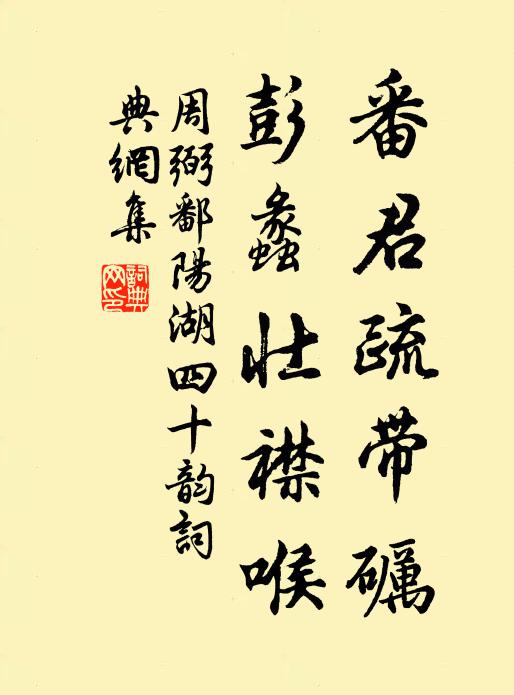 番君疏帶礪
彭蠡壯襟喉
周弼鄱陽湖四十韵詞
典網集
詞典網印